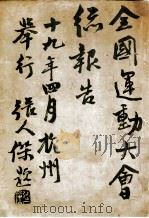 全國運動大會
總報告
十九年四月杭州
舉行 張人傑題